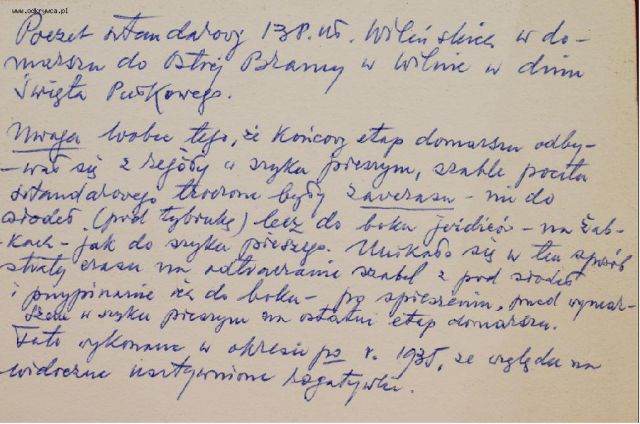 www.odkrywca.pl
Poczet sztandarowy 13 P. Uł. Wileńskich w do-
marszu do Ostrej Bramy w Wilnie w dniu
Święta Pułkowego.
Uwaga wobec tego, że końcowy etap domarszu odby-
-wał się z reguły w szyku pieszym, szable pocztu
sztandarowego troczone były zawczasu - nie do
siodeł (pod tybinkę) lecz do boku jeźdźców - na żab-
-kach - jak do szyku pieszego. Unikało się w ten sposób
straty czasu na odtraczanie szabel z pod siodeł
i przypinanie ich do boku - po spieszeniu, przed wymar-
szem w szyku pieszym na ostatni etap domarszu.
Foto wykonane w okresie po r. 1935, ze względu na
widoczne usztywnione rogatywki.